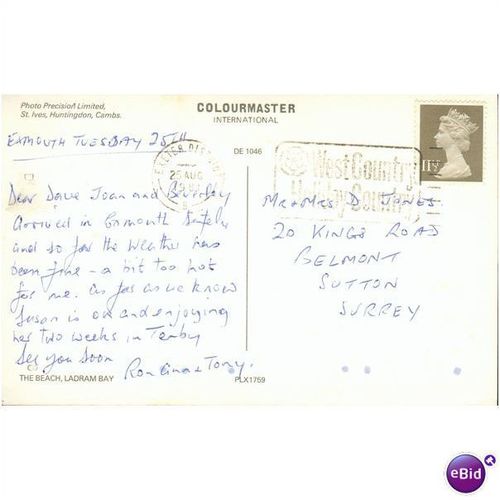 Photo Precision Limited,
St. Ives, Huntingdon, Cambs.
COLOURMASTER
INTERNATIONAL
EXMOUTH TUESDAY 25TH
DE 1046
EXETER
25 AUG
West Country
Holiday Country
11½P
Dear Dave Joan and Beverley
Arrived in Exmouth safely
and so far the weather has
been fine - a bit too hot
for me. As far as we know
Susan is ok and enjoying
her two weeks in Tenby
See you soon
Ron Gina & Tony.
MR & MRS D. JONES
20 KINGS ROAD
BELMONT
SUTTON
SURREY
THE BEACH, LADRAM BAY
PLX1759
eBid